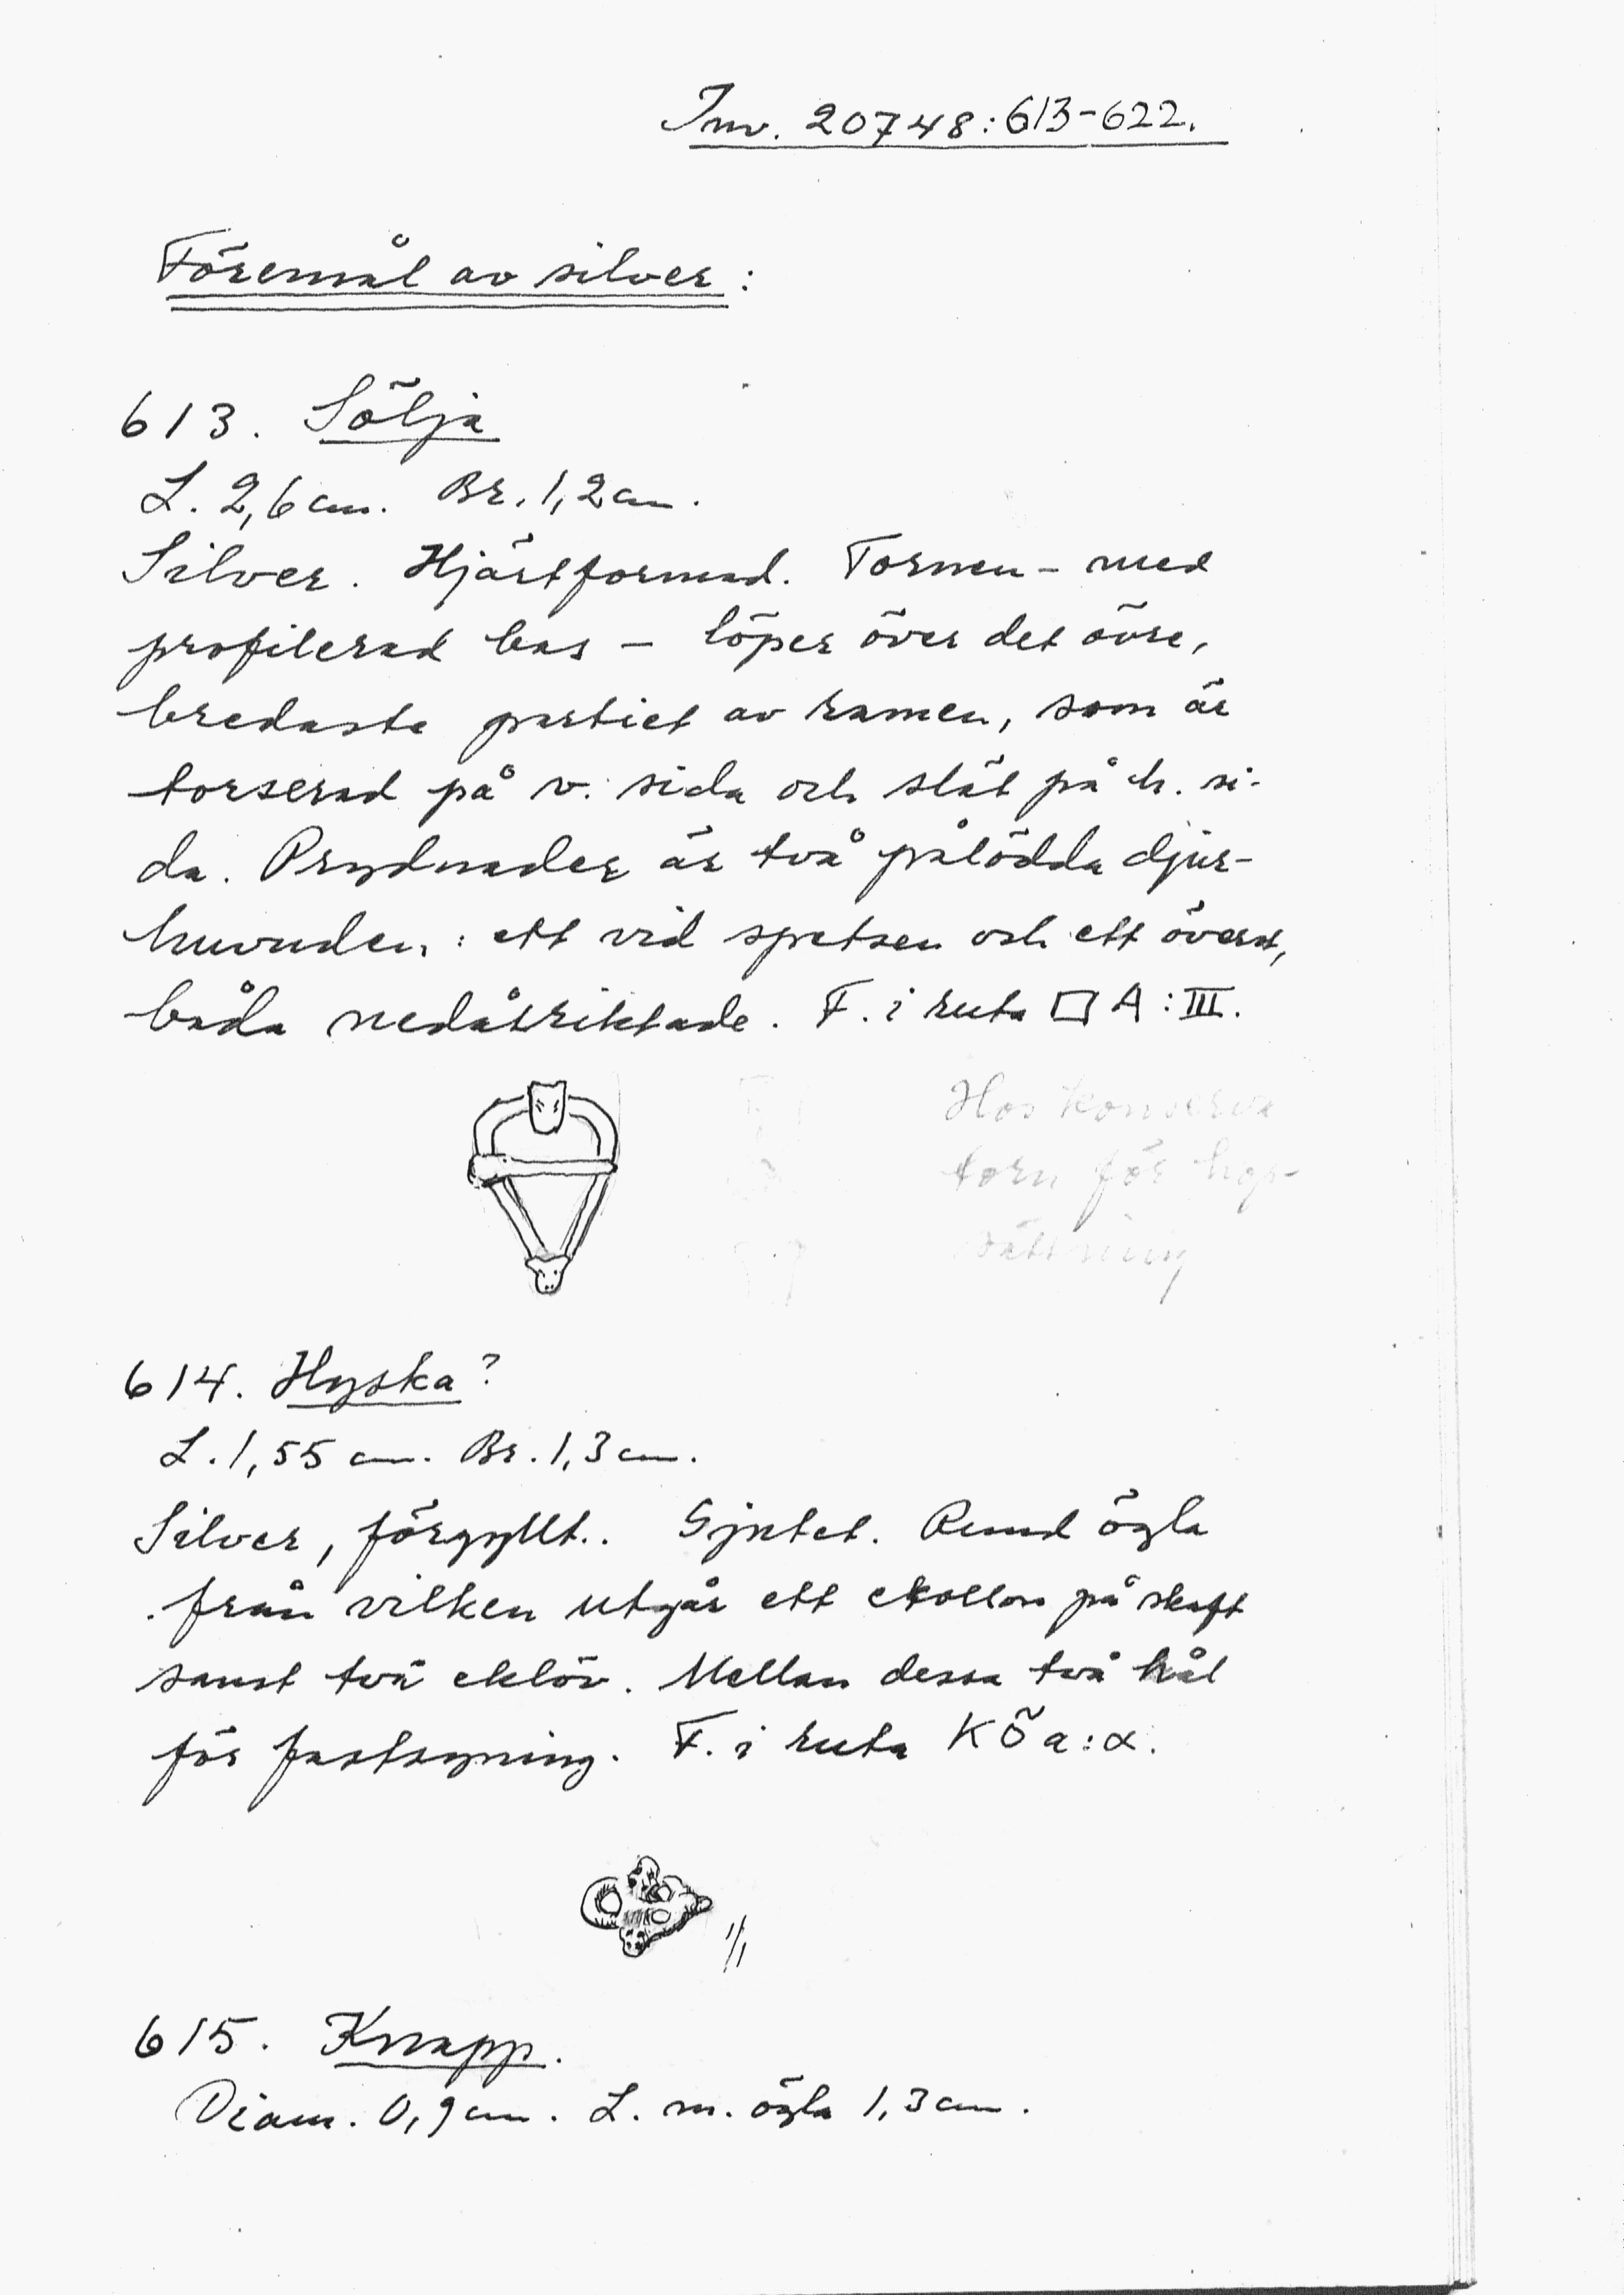 Inv. 20748:613-622.
Föremål av silver:
613. Sölja
L. 2,6 cm. Br. 1,2 cm.
Silver. Hjärtformad. Tornen - med
profilerad bas - löper över det övre,
bredaste partiet av ramen, som är
torserad på v. sida och slät på h. si-
da. Prydnader är två pålödda djur-
huvuden: ett vid spetsen och ett överst,
båda nedåtriktade. F. i ruta □ A:III.
Hos konserva
torn för hop-
sättning
614. Hyska?
L. 1,55 cm. Br. 1,3 cm.
Silver, förgyllt.. Gjutet. Rund ögla
från vilken utgår ett ekollon på skaft
samt två eklöv. Mellan dessa två hål
för fastsyning. F. i ruta KÖa:α.
1/1
615. Knapp.
Diam. 0,9 cm. L. m. ögla 1,3 cm.